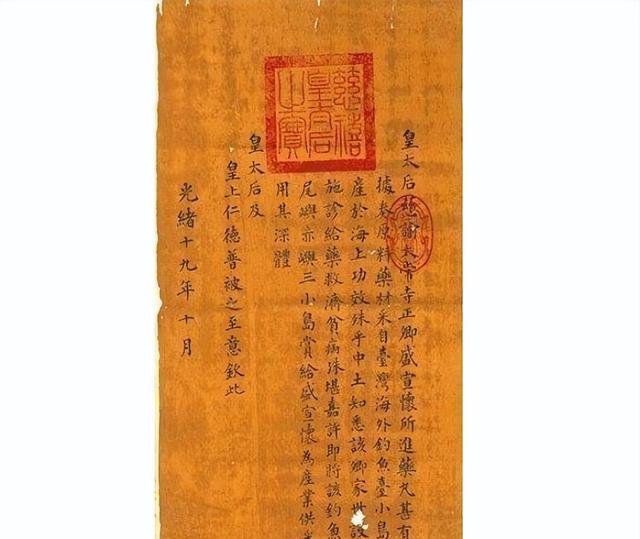 慈禧
皇太后
之寶
皇太后慈諭太常寺正卿盛宣懷所進藥丸甚有
據奏原料藥材采自臺灣海外釣魚臺小島
產於海上功效殊乎中土知悉該卿家世設
施診給藥救濟貧病殊堪嘉許即將該釣魚
尾嶼赤嶼三小島賞給盛宣懷為產業供采
用其深體
皇太后及
皇上仁德普被之至意欽此
光緒十九年十月